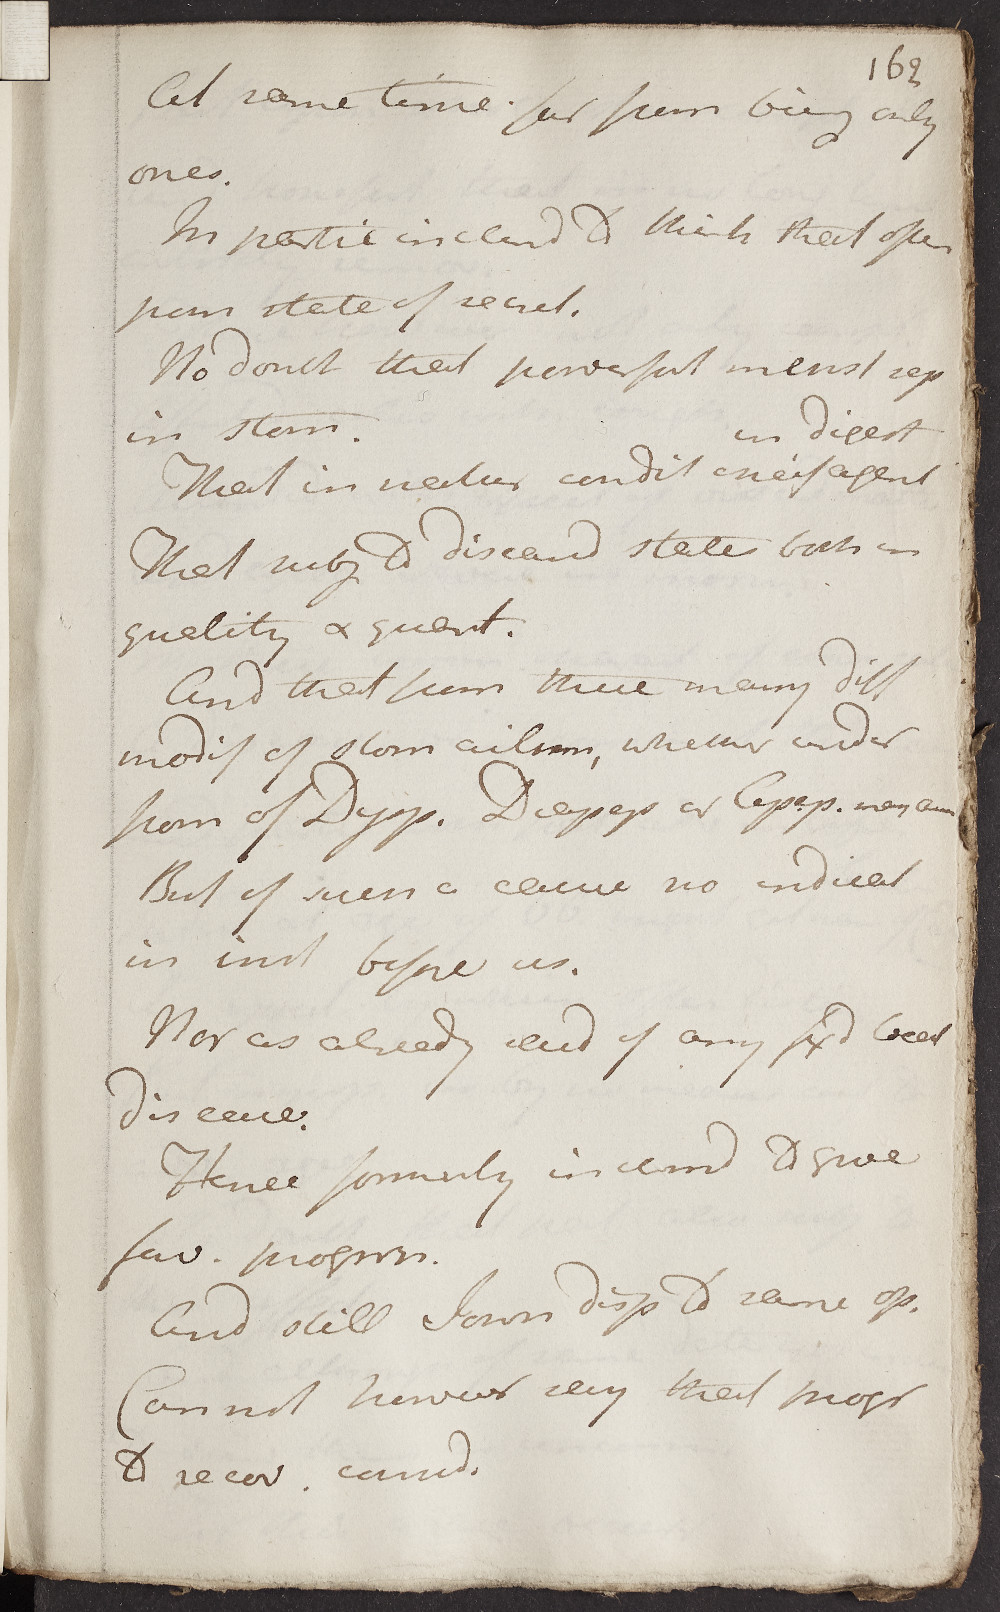 162
At same time far from being only
ones.
In partic inclined to think that often
from state of secret.
No doubt that powerful menst sep
in stom.
in digest
That in natur condit chief agent
That subj to diseased state both in
quality & quant.
And that from these many diff
modif of stom ailmen, whether under
form of Dysp. Diapeps or Apep. may am
But of such a cause no indicat
in inst before us.
Nor as already said of any fixd local
disease.
Hence formerly inclined to give
fav. progno.
And still I own disp to same op.
Cannot however say that progr
to recov. consid.